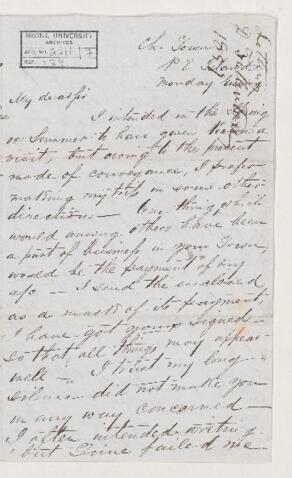 McGILL UNIVERSITY
ARCHIVES
ACC. NO.
REF.
Ch. Town
P E Island
Monday
My dear Sir
I intended in the Spring
or Summer to have given
visit, but owing to the present
mode of conveyance, I prefer
making my trip in some other
direction — One thing which
would among others have been
a part of business in your Town,
would be the payment of my
a/c — I send the enclosed
as a mark of its payment,
I have got yours signed —
so that all things may appear
well — I trust my long
silence did not make you
in any way concerned —
I often intended writing
but Time failed me